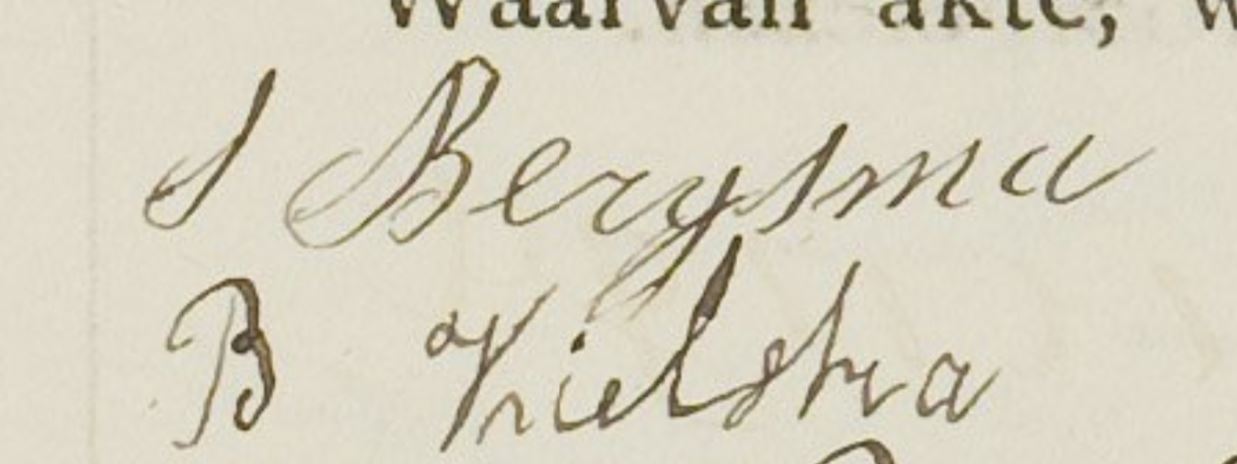 Waarvan akte, w
S Bergsma
B Kielstra